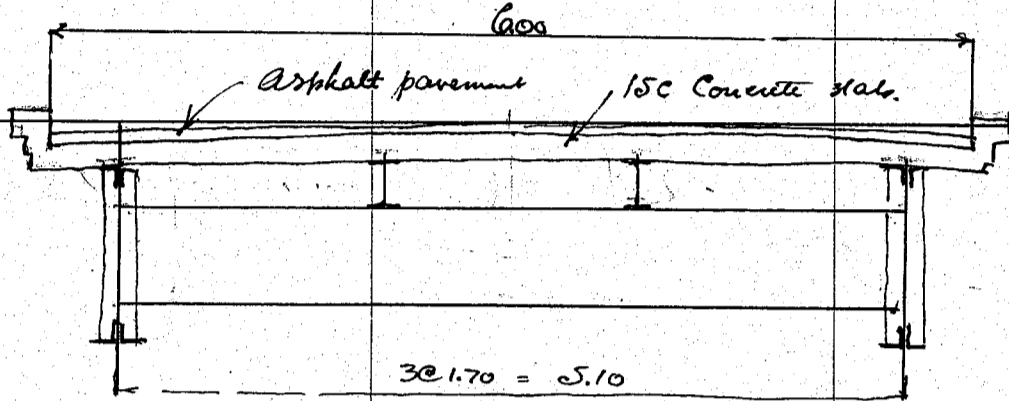 6.00
Asphalt pavement
15c Concrete slab.
3@1.70 = 5.10